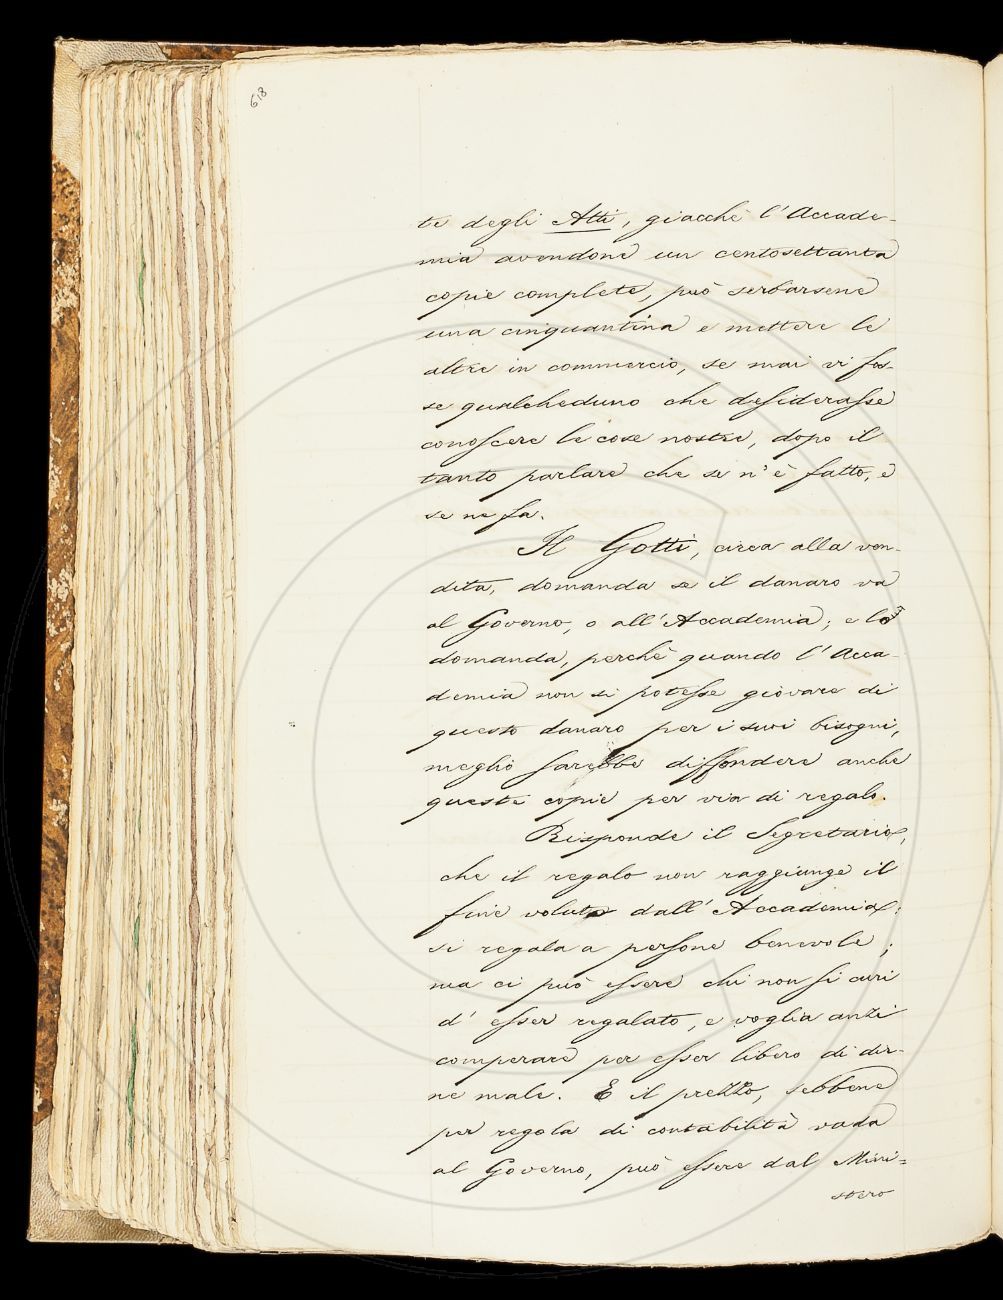 618
te degli Atti, giacchè l'Accade-
mia avendone un centosettanta
copie complete, può serbarsene
una cinquantina e mettere le
altre in commercio, se mai vi fos-
se qualcheduno che desiderasse
conoscere le cose nostre, dopo il
tanto parlare che se n'è fatto, e
se ne fa.
Il Gotti, circa alla ven-
dita, domanda se il danaro va
al Governo, o all'Accademia; e lo
domanda, perchè quando l'Acca-
demia non si potesse giovare di
questo danaro per i suoi bisogni,
meglio sarebbe diffondere anche
queste copie per via di regalo.
Risponde il Segretario,
che il regalo non raggiunge il
fine voluto dall'Accademia:
si regala a persone benevole;
ma ci può essere chi non si curi
d'esser regalato, e voglia anzi
comperare per esser libero di dir-
ne male. E il prezzo, sebbene
per regola di contabilità vada
al Governo, può essere dal Mini=
stero